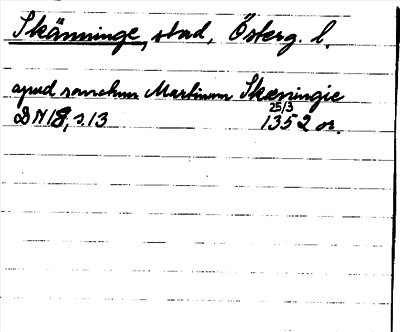 Skänninge, stad, Österg. l.
apud sanctum Martinum Skæningie
DN 18, s. 13 25/3 1352 or.